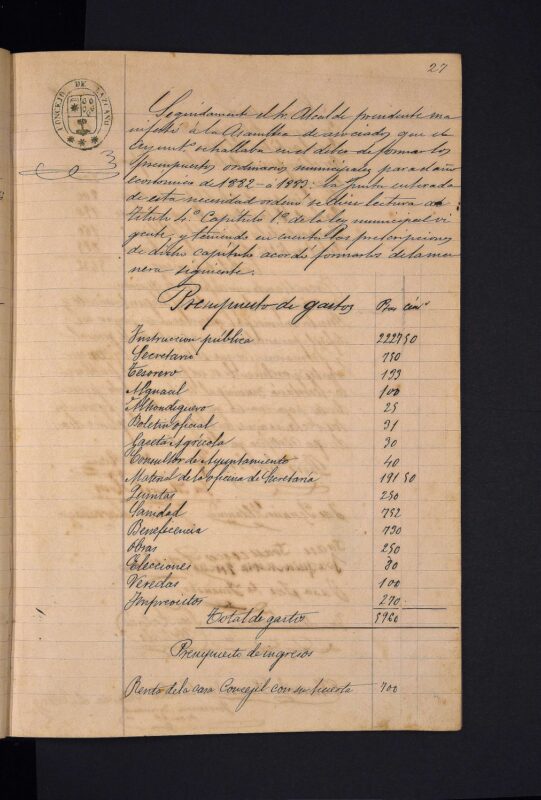 27
CONCEJO DE
3
Seguidamente el Sr. Alcalde presidente ma
nifestó a la Asamblea de asociados que el
Ayunt.º se hallaba en el deber de formar los
presupuestos ordinarios municipales para el año
económico de 1882-a 1883: la Junta enterada
de esta necesidad ordenó se diera lectura al
título 4.º Capítulo 1.º de la ley municipal vi
gente, y teniendo en cuenta las prescripciones
de dicho capítulo acordó formarlos de la ma
nera siguiente.
Presupuesto de gastos Ptas cén.s
Instruccion pública 2227 50
Secretario 750
Tesorero 199
Alguacil 100
Alhondiguero 25
Boletin oficial 31
Gaceta Agrícola 30
Consultor de Ayuntamiento 40
Material de la oficina de Secretaría 191 50
Quintas 250
Sanidad 752
Beneficencia 730
Obras 250
Elecciones 30
Veredas 100
Imprevistos 270
Total de gastos 5960
Presupuesto de ingresos
Renta de la casa Concejil con su huerta 700